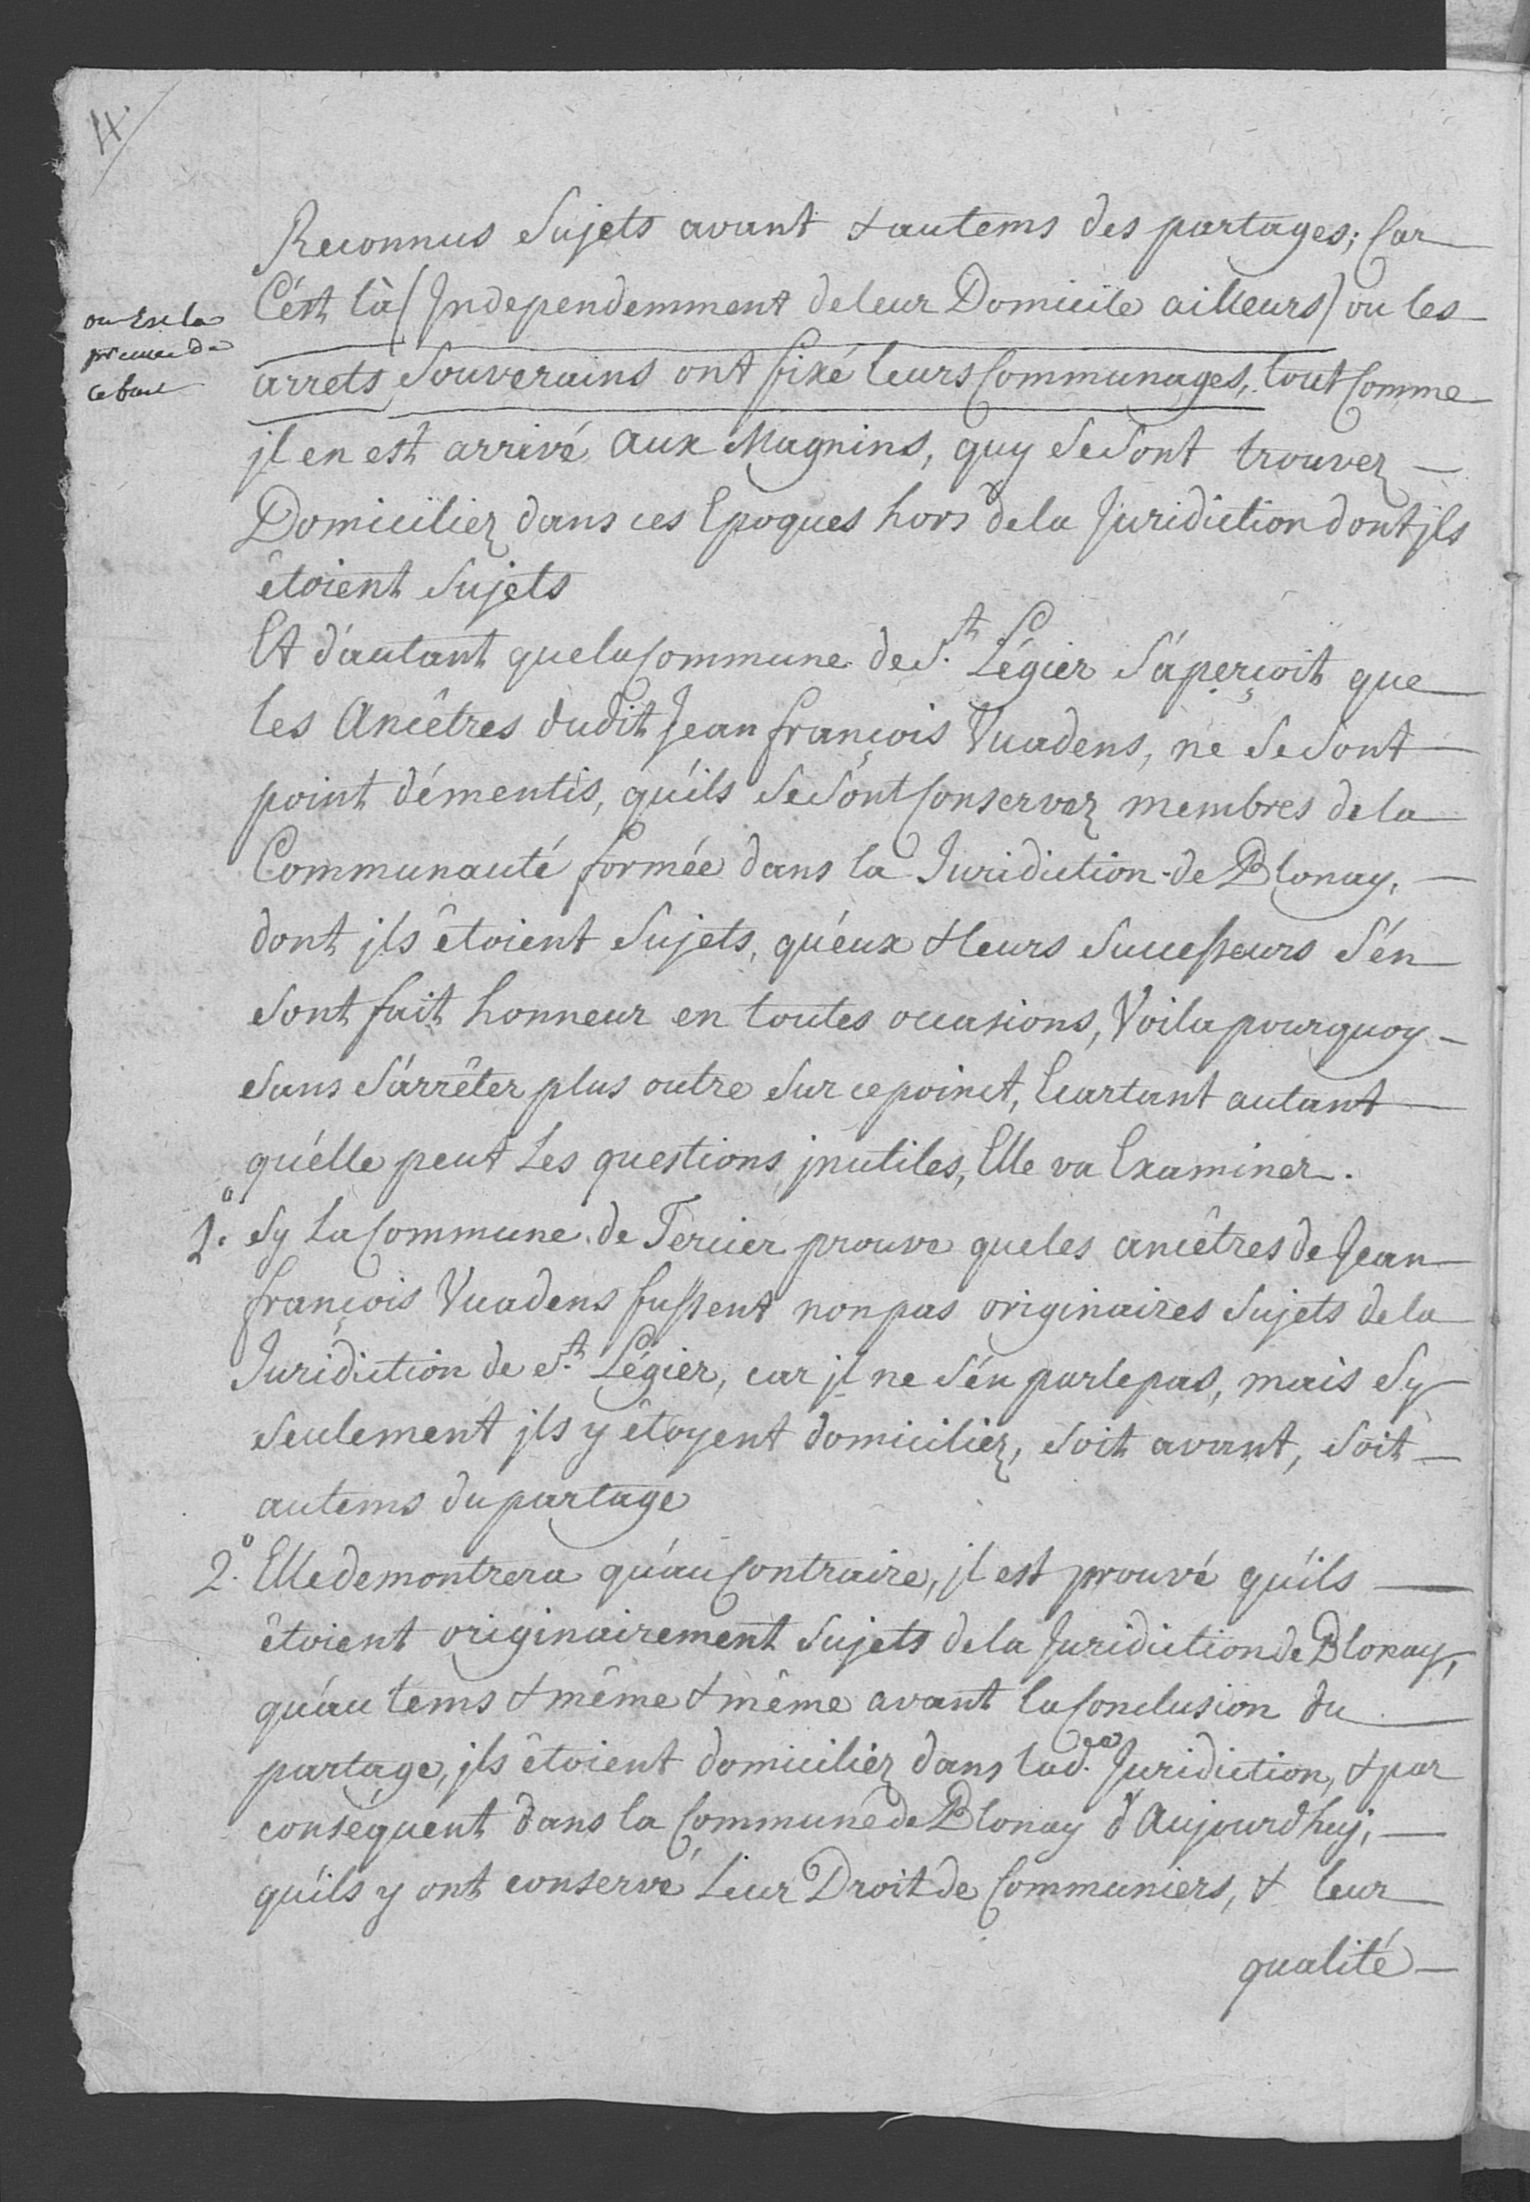 4.
Reconnus Sujets avant & autems des partages; Car
C'est là (Independemment de leur Domicile ailleurs) ou les
ou Est la
preuve de
ce fait
arrets Souverains ont fixé leurs Communages, tout Comme
jl en est arrivé aux Magnins, quy se sont trouvez
Domiciliez dans ces Epoques hors de la Juridiction dont jls
êtoient Sujets
Et d'autant que la Commune de St. Légier S'aperçoit que
les Ancêtres dudit Jean françois Vuadens, ne se sont
point démentis, qu'ils se sont Conservez membres de la
Communauté formée dans la Juridiction de Blonay,
dont jls êtoient Sujets, qu'eux & leurs Successeurs s'én
sont fait honneur en toutes occasions, Voila pourquoy
sans S'arrêter plus outre sur ce poinct, Ecartant autant
qu'élle peut Les questions jnutiles, Elle va Examiner.
1.° Sy La Commune de Tercier prouve que les ancêtres de Jean
françois Vuadens fussent non pas originaires Sujets de la
Juridiction de St. Légier, car jl ne s'én parle pas, mais Sy
seulement jls y êtoyent domiciliez, soit avant, soit
autems du partage
2.° Elle demontrera qu'au Contraire, jl est prouvé qu'ils
êtoient originairement Sujets de la Juridiction de Blonay,
qu'au tems & même & même avant la Conclusion du
partage, jls êtoient domiciliéz dans lad.e Juridiction, & par
conséquent dans la Commune de Blonay d'Aujourdhuj,
qu'ils y ont conservé Leur Droit de Communiers, & leur
qualité